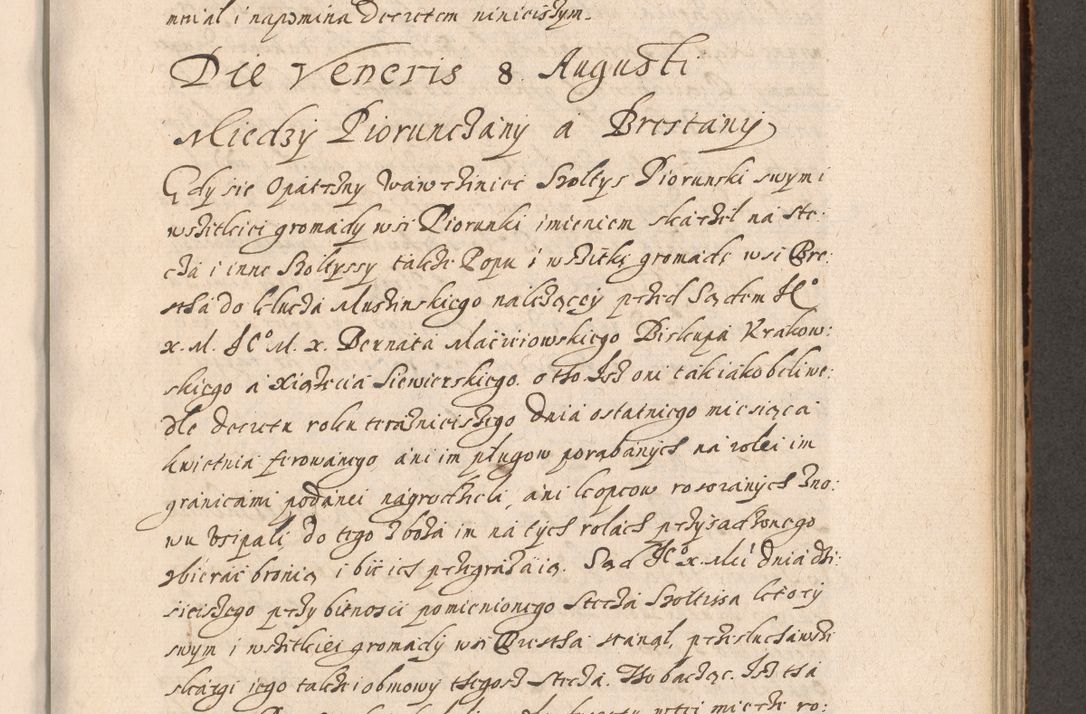 mniał i napomina Decretem ninieiszym.
Die Veneris 8. Augusti
Miedzy Piorunczany a Brestany
Gdy sie Opatrzny Wawrziniec Szołtys Piorunski swym i
wszitkiei gromady wsi Piorunki imieniem skarzeł na Ste:
cza i inne Szołtyssy takze Popu i wszitkę gromadę wsi Bre:
stha do klucza Muszinskiego nalezęcey przed Sądem Jeº
x. M. Jeº M. x. Bernata Macieiowskiego Biskupa Krakow:
skiego a Xiążęcia Siewierskiego. o tho Isz oni tak iako bcliwe:
dle decretu roku teraznieiszego dnia ostatniego miesiąca
kwietnia ferowanego ani im pługow porąbanych na rolei im
granicami podanei nagrodzili, ani kopcow rozoranych zno:
wu vsipali do tego zboża im na tych rolach przysadzonego
zbierac bronią i bic ich przegrażaią. Sąd Jeº x. Mci dnia dzi:
sieiszego przy bitnosci pomienionego Stecza Szoltissa ktory
swym i wszitkiei gromady wsi Brestha stanąl, przesłuchawszi
skargi iego takze i obmowy thegosz Stecza. Tho bacząc. Isz tha